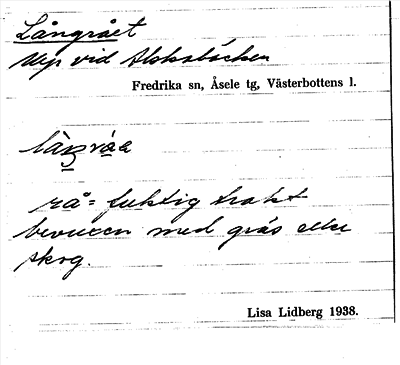 Långrået
vid
Fredrika sn, Åsele tg, Västerbottens l.
rå = fuktig trakt
bevuxen med gräs eller
skog.
Lisa Lidberg 1938.